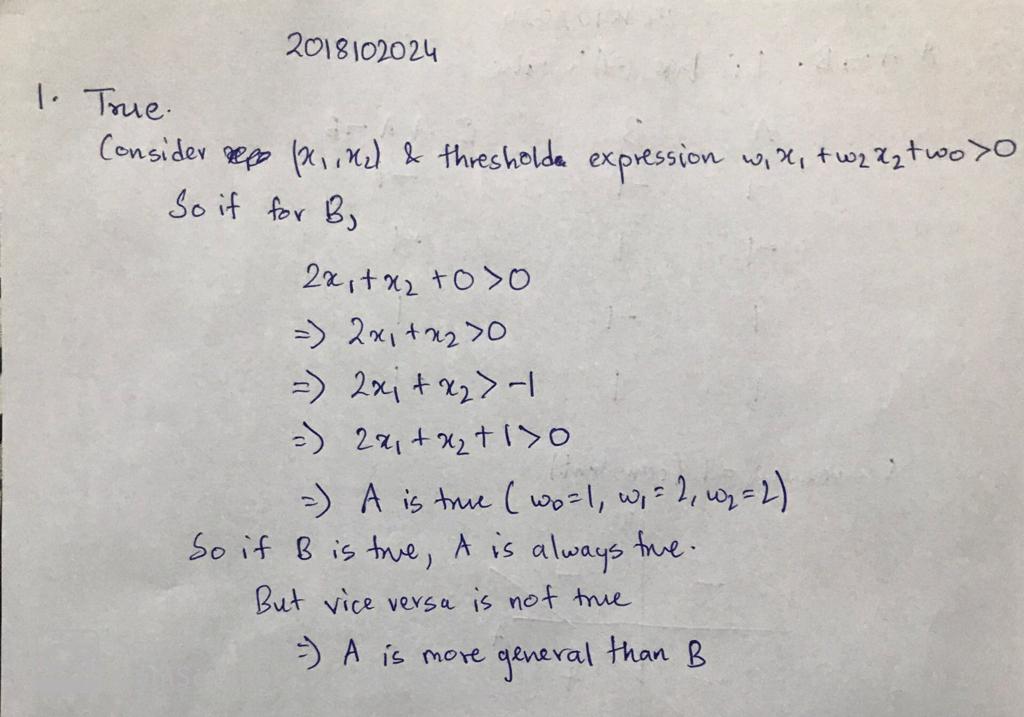 2018102024
1. True.
Consider (x₁, x₂) & threshold expression w₁x₁ + w₂x₂ + w₀ > 0
So if for B,
2x₁ + x₂ + 0 > 0
=> 2x₁ + x₂ > 0
=> 2x₁ + x₂ > -1
=> 2x₁ + x₂ + 1 > 0
=> A is true (w₀ = 1, w₁ = 2, w₂ = 2)
So if B is true, A is always true.
But vice versa is not true
=> A is more general than B